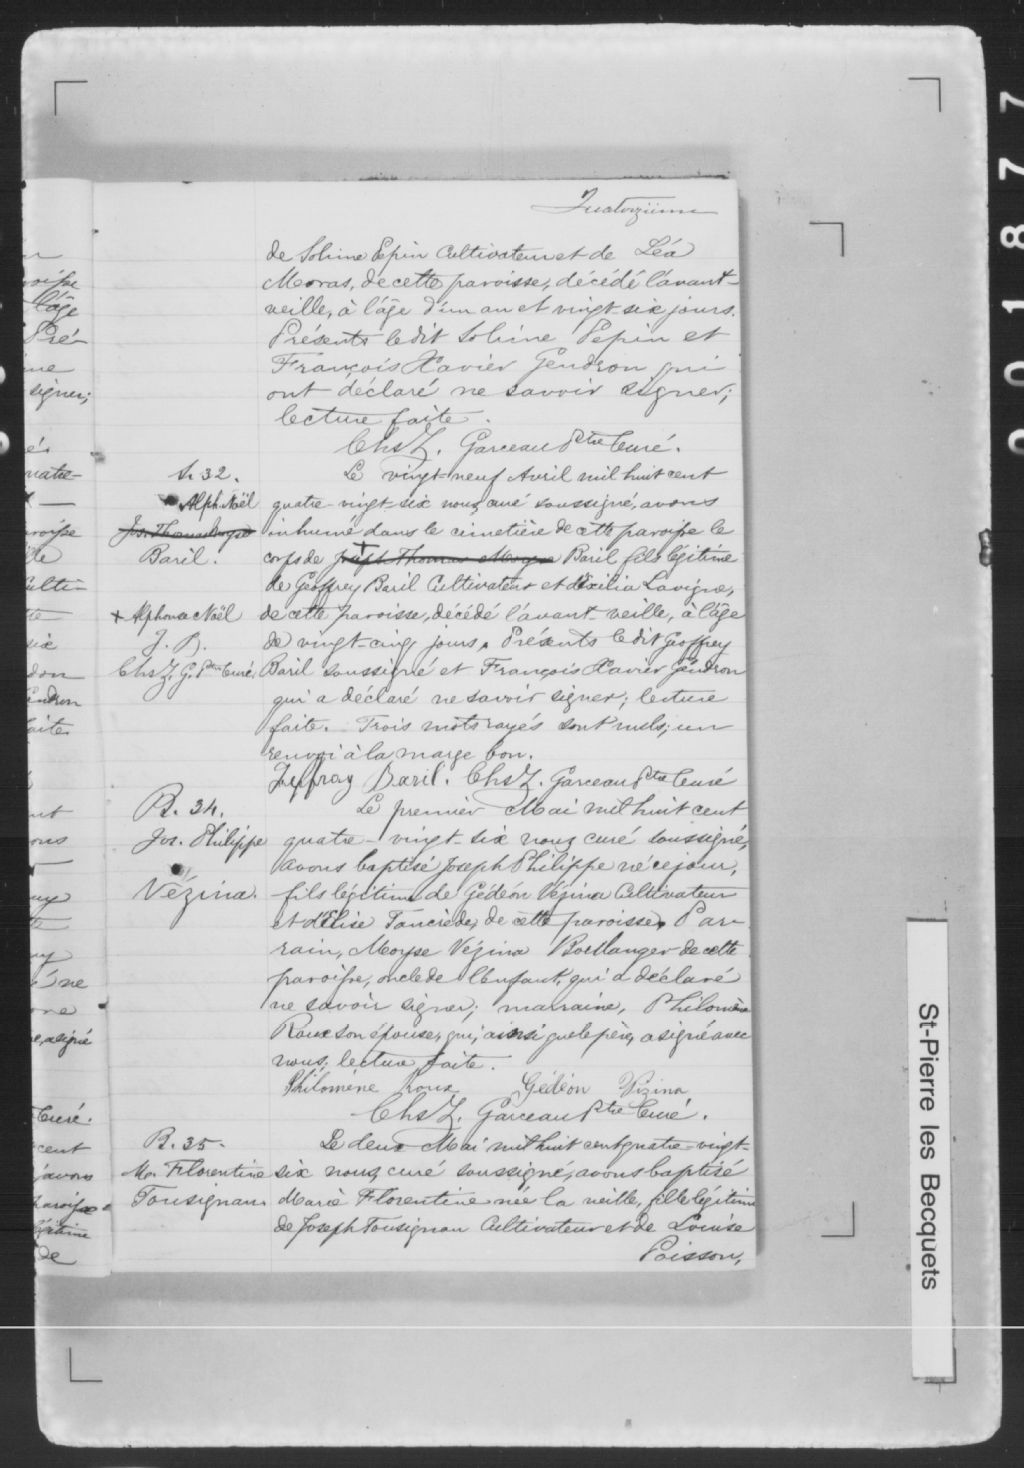 Quatorzième
de Solime Pepin Cultivateur et de Léa
Moras, de cette paroisse, décédé l'avant-
veille, à l'âge d'un an et vingt-six jours.
Présents ledit Solime Pepin et
François Xavier Gendron qui
ont déclaré ne savoir signer;
lecture faite.
Chs Z. Garceau Ptre Curé.
S. 32.
Alph. Noël
Baril.
+ Alphonse Noël
J. B.
Chs Z. G. Ptre Curé.
Le vingt-neuf Avril mil huit cent
quatre-vingt-six nous, curé soussigné, avons
inhumé dans le cimetière de cette paroisse le
corps de Joseph Thomas + Baril fils légitime
de Geoffrey Baril Cultivateur et d'Exilia Lavigne,
de cette paroisse, décédé l'avant-veille, à l'âge
de vingt-cinq jours. Présents ledit Geoffrey
Baril soussigné et François Xavier Gendron
qui a déclaré ne savoir signer; lecture
faite. Trois mots rayés sont nuls; un
renvoi à la marge bon.
Jeffray Baril. Chs Z. Garceau Ptre Curé
B. 34.
Jos. Philippe
Vézina.
Le premier Mai mil huit cent
quatre-vingt-six nous curé soussigné,
avons baptisé Joseph Philippe né ce jour,
fils légitime de Gédéon Vézina Cultivateur
et d'Elise Tancrède, de cette paroisse. Par-
rain, Moyse Vézina Boulanger de cette
paroisse, oncle de l'enfant, qui a déclaré
ne savoir signer; marraine, Philomène
Roux son épouse, qui, ainsi que le père, a signé avec
nous; lecture faite.
Philomène Roux Gédéon Vézina
Chs Z. Garceau Ptre Curé.
B. 35.
M. Florentine
Tousignan.
Le deux Mai mil huit cent quatre-vingt-
six nous, curé soussigné, avons baptisé
Marie Florentine née la veille, fille légitime
de Joseph Tousignan Cultivateur et de Louise
Poisson,
St-Pierre les Becquets
001877